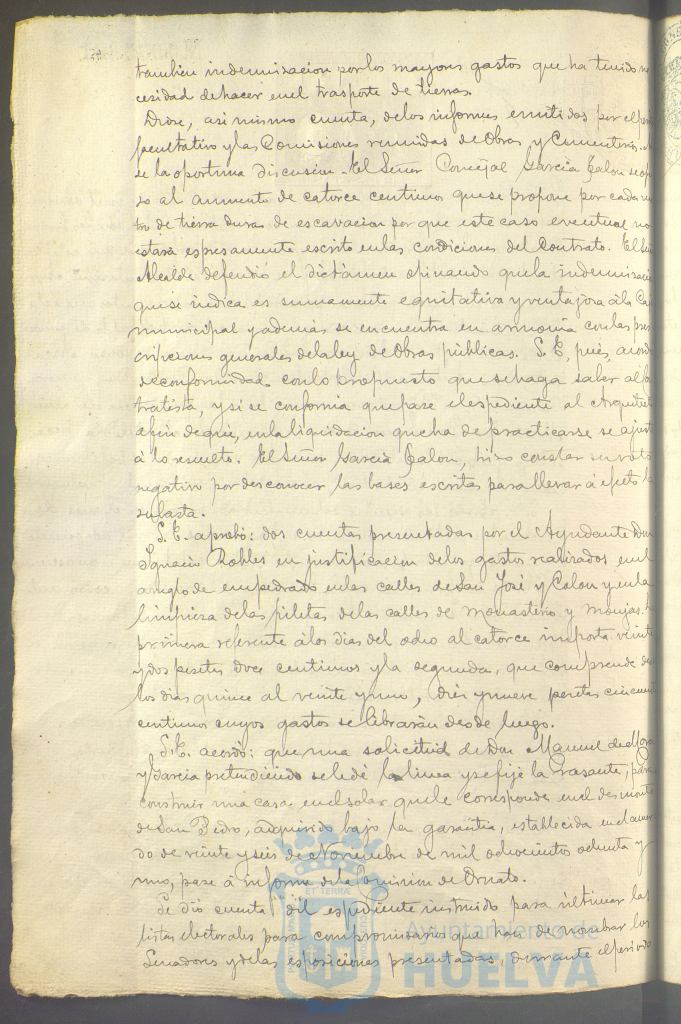 tambien indemnizacion por los mayores gastos que ha tenido ne
cesidad de hacer en el trasporte de tierras.
Diose, asi mismo cuenta, de los informes emitidos por el
facultativo y las Comisiones reunidas de Obras y Cementerio.
se la oportuna discusion. El Señor Concejal Garcia Jalon se opu
so al aumento de catorce centimos que se propone por cada me
tro de tierra dura de escavacion por que este caso eventual no
estaba espresamente escrito en las condiciones del Contrato. El Señ
Alcalde defendió el dictámen opinando que la indemnizaci
que se indica es sumamente equitativa y ventajosa á la Ca
municipal y además se encuentra en armonia con las pres
cripciones generales de la ley de Obras públicas. S. E, pues, acord
de conformidad con lo propuesto que se haga saber al co
tratista, y si se conforma que pase el espediente al Arquitect
afin de que, en la liquidacion que ha de practicarse se ajust
á lo resuelto. El Señor Garcia Jalon, hizo constar su voto
negativo por desconocer las bases escritas para llevar á efecto la
subasta.
S. E. aprobó: dos cuentas presentadas por el Ayudante Don
Ignacio Robles en justificacion de los gastos realizados en el
arreglo de empedrado en las calles de San José y Colon y en la
limpieza de las piletas de las calles de Monasterio y Monjas. La
primera referente á los dias del ocho al catorce importa veinte
y dos pesetas doce centimos y la segunda, que comprende de
los dias quince al veinte y uno, diez y nueve pesetas cincuent
centimos cuyos gastos se librarán desde luego.
S. E. acordó: que una solicitud de Don Manuel de Mora
y Garcia pretendiendo se le dé la linea y se fije la rasante, para
construir una casa en el solar que le corresponde en el desmonte
de San Pedro, adquirido bajo la garantia, establecida en el acuer
do de veinte y seis de Noviembre de mil ochocientos ochenta y
uno, pase á informe de la Comision de Ornato.
Se dió cuenta del espediente instruido para ultimar las
listas electorales para compromisarios que han de nombrar los
Senadores y de las esposiciones presentadas, durante el periodo
Ayuntamiento de
HUELVA